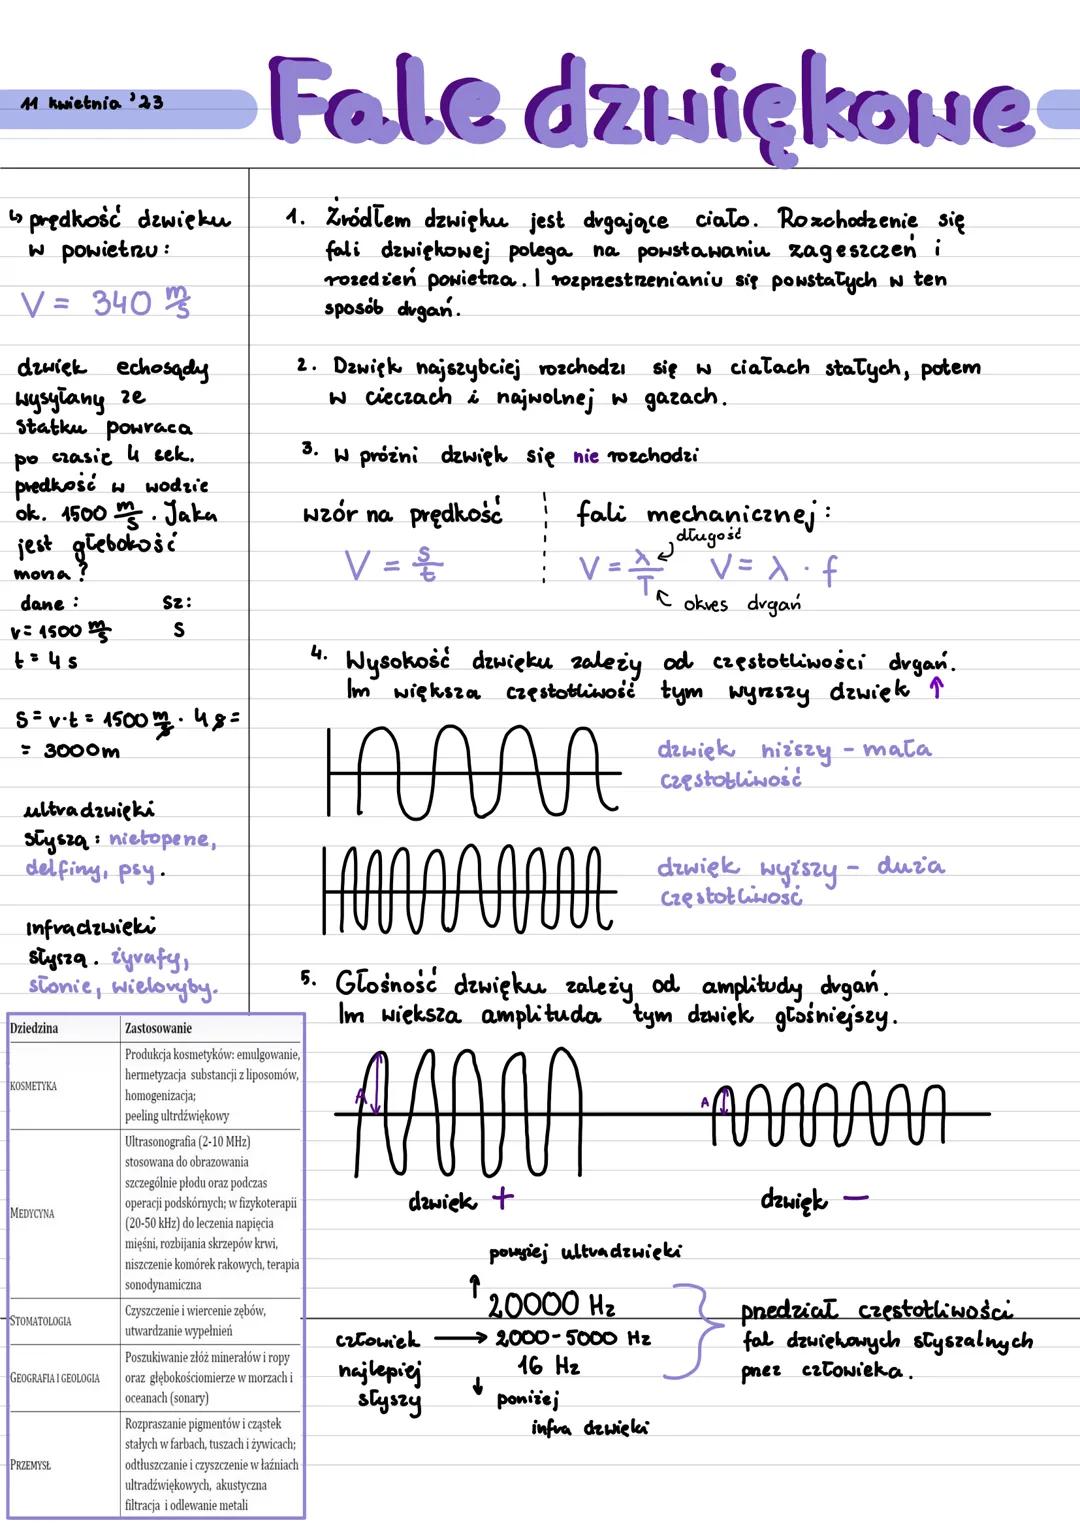 11 kwietnia '23
Fale dzwiękowe
↳ prędkość dzwięku
w powietrzu:
V = 340 m/s
dzwięk echosądy
wysyłany ze
statku powraca
po czasie 4 sek.
predkość w wodzie
ok. 1500 m/s. Jaka
jest głębokość
morza?
dane: Sz:
v = 1500 m/s S
t = 4 s
S = v·t = 1500 m/s · 4 s =
= 3000m
ultradzwięki
słyszą: nietoperze,
delfiny, psy.
infradzwięki
słyszą. żyrafy,
słonie, wieloryby.
Dziedzina Zastosowanie
KOSMETYKA
Produkcja kosmetyków: emulgowanie,
hermetyzacja substancji z liposomów,
homogenizacja;
peeling ultrdźwiękowy
MEDYCYNA
Ultrasonografia (2-10 MHz)
stosowana do obrazowania
szczególnie płodu oraz podczas
operacji podskórnych; w fizykoterapii
(20-50 kHz) do leczenia napięcia
mięśni, rozbijania skrzepów krwi,
niszczenie komórek rakowych, terapia
sonodynamiczna
STOMATOLOGIA
Czyszczenie i wiercenie zębów,
utwardzanie wypełnień
GEOGRAFIA I GEOLOGIA
Poszukiwanie złóż minerałów i ropy
oraz głębokościomierze w morzach i
oceanach (sonary)
PRZEMYSŁ
Rozpraszanie pigmentów i cząstek
stałych w farbach, tuszach i żywicach;
odtłuszczanie i czyszczenie w łaźniach
ultradźwiękowych, akustyczna
filtracja i odlewanie metali
1. Żródłem dzwięku jest drgające ciało. Rozchodzenie się
fali dzwiękowej polega na powstawaniu zagęszczeń i
rozedzień powietrza. I rozprzestrzenianiu się powstałych w ten
sposób drgań.
2. Dzwięk najszybciej rozchodzi się w ciałach stałych, potem
w cieczach i najwolnej w gazach.
3. W próżni dzwięk się nie rozchodzi
wzór na prędkość fali mechanicznej:
V = s/t V = λ/T V = λ · f
długość
okres drgań
4. Wysokość dzwięku zależy od częstotliwości drgań.
Im większa częstotliwość tym wyższy dzwięk ↑
dzwięk niższy - mała
częstotliwość
dzwięk wyższy - duża
częstotliwość
5. Głośność dzwięku zależy od amplitudy drgań.
Im większa amplituda tym dzwięk głośniejszy.
A A
dzwięk + dzwięk -
powyżej ultradzwięki
↑ 20000 Hz
człowiek → 2000-5000 Hz
najlepiej 16 Hz
słyszy ↓ poniżej
infra dzwięki
przedział częstotliwości
fal dzwiękowych słyszalnych
przez człowieka.